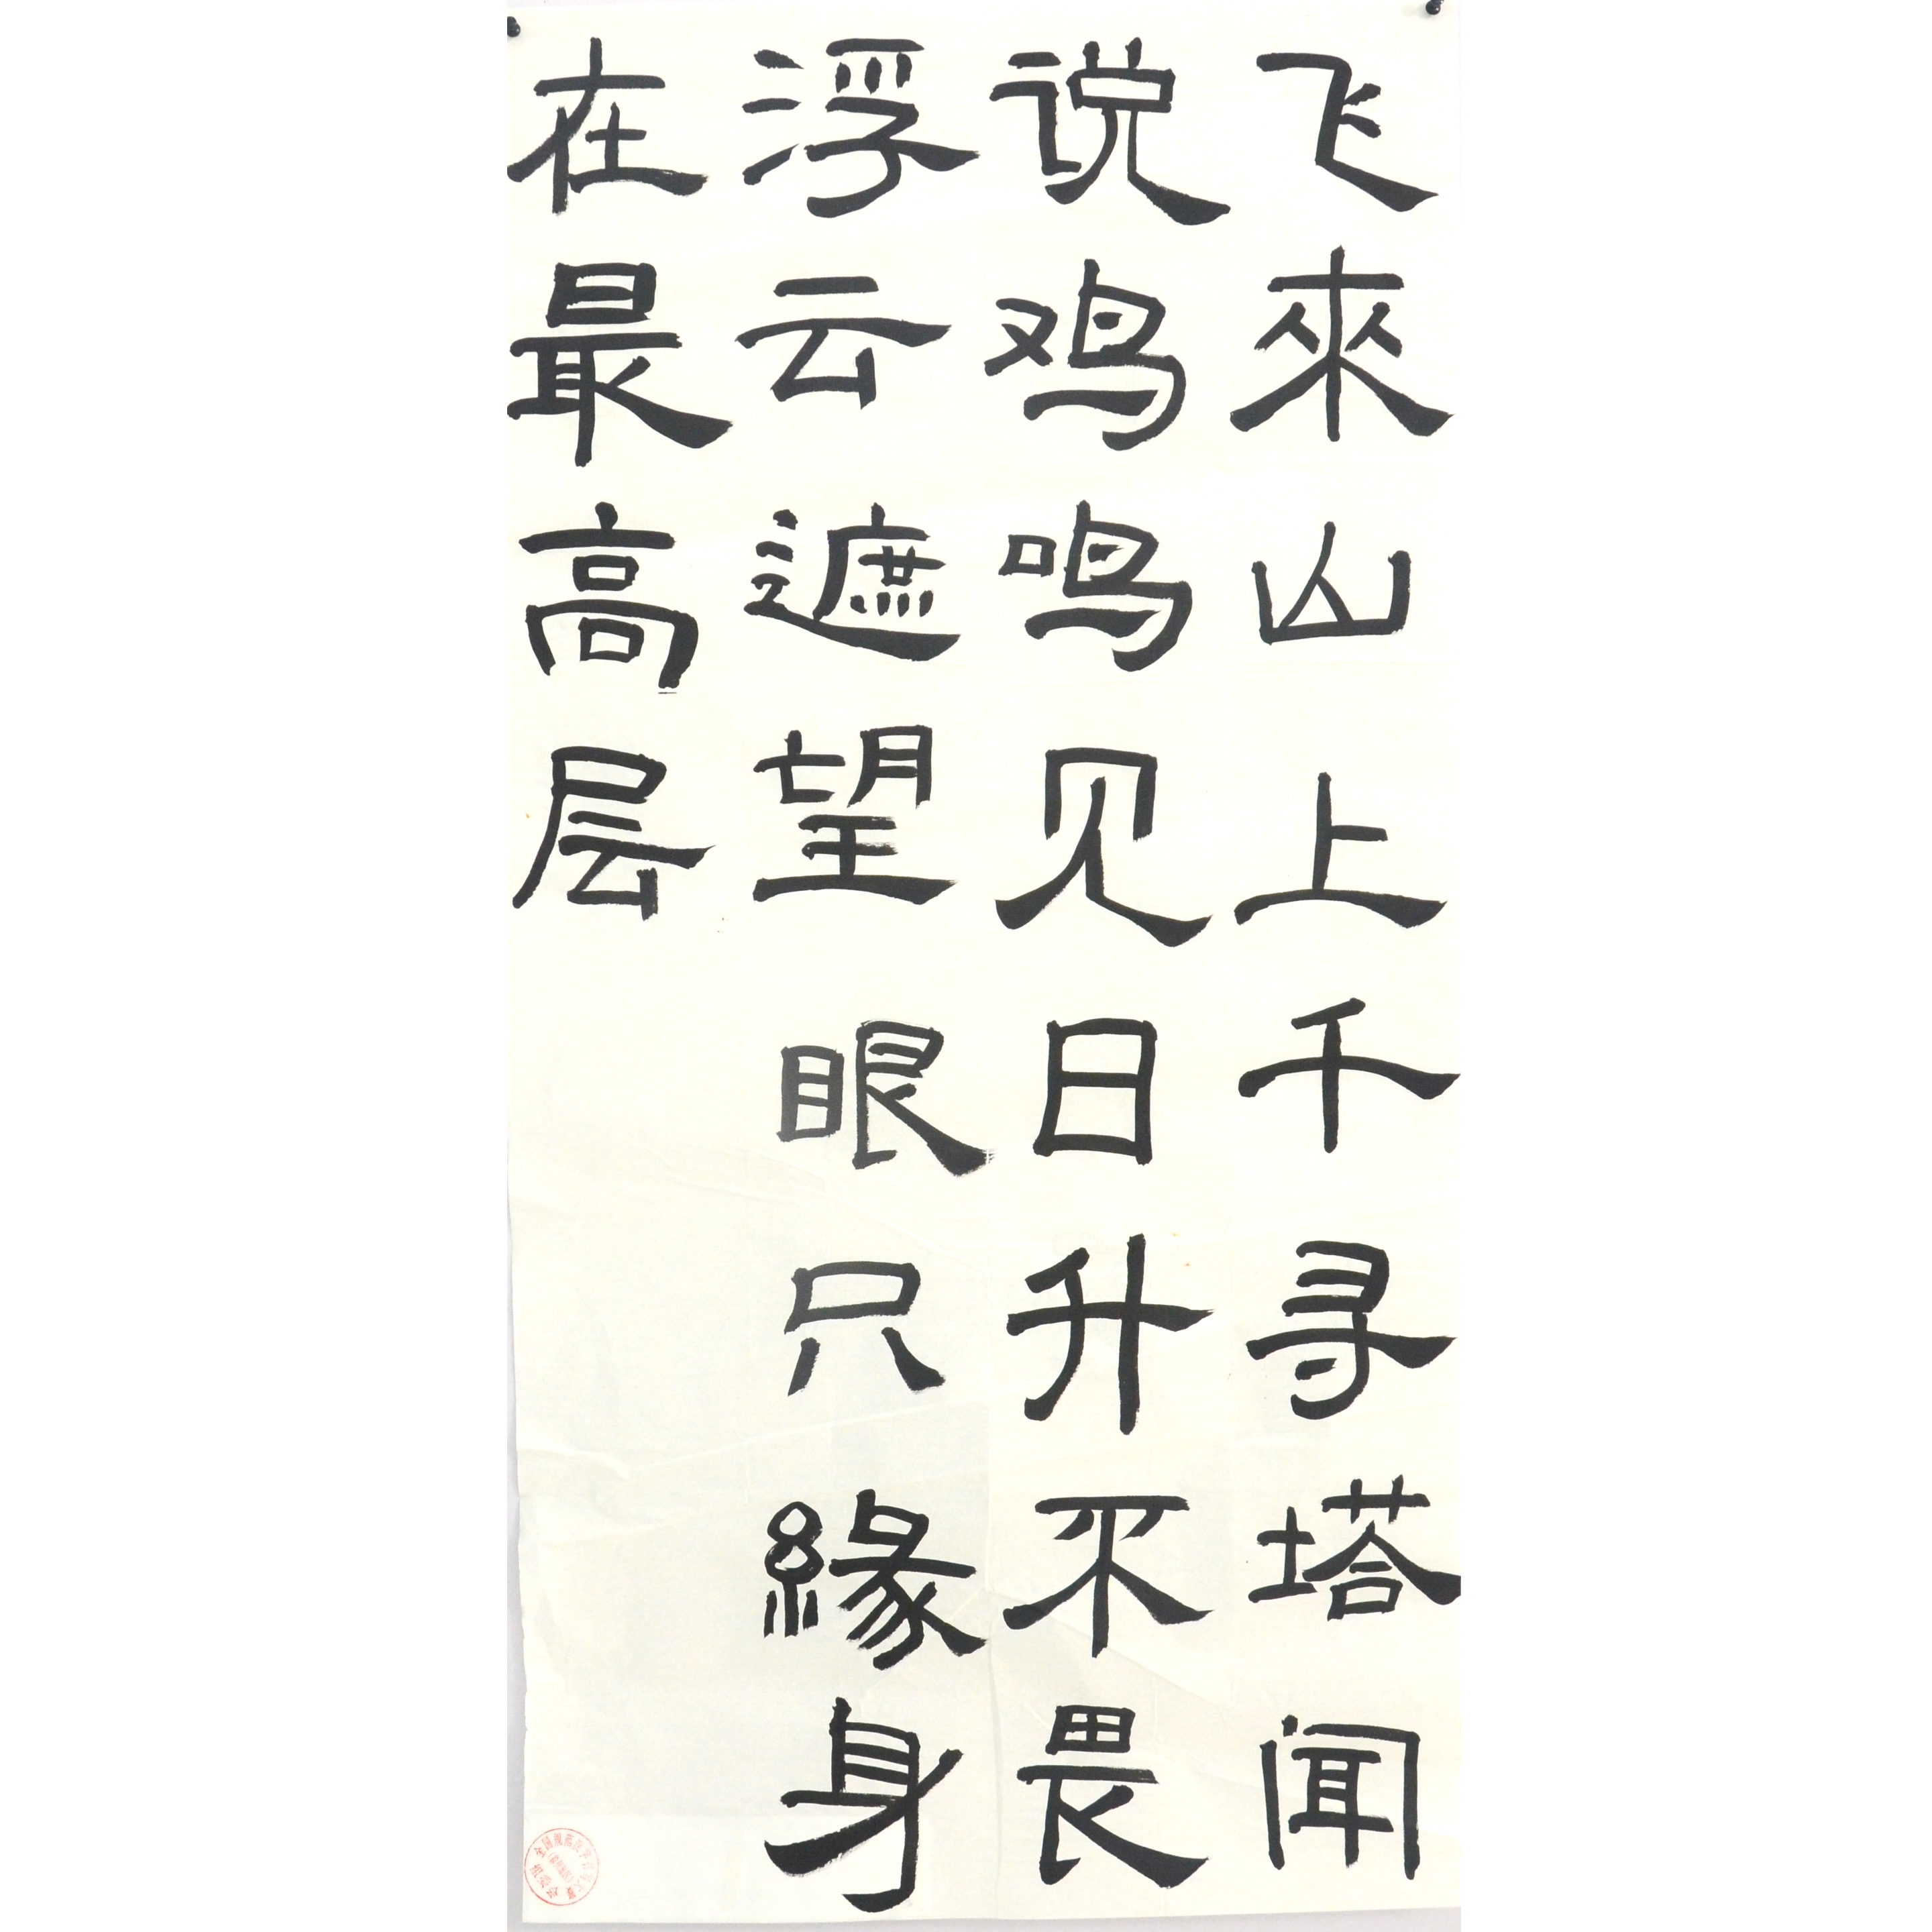 飞來山上千寻塔闻
说鸡鸣见日升不畏
浮云遮望眼只緣身
在最高层